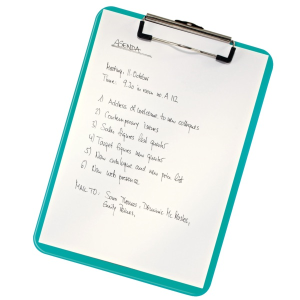 AGENDA:
Meeting, 8 October
Time: 9.30 in room no. A 112
1) Address of welcome to new colleagues
2) Contemporary issues
3) Sales figures last quarter
4) Target figures new quarter
5) New catalogue and new price list
6) New web presence
MAIL TO: Sara Thomas, Dominic
Emily